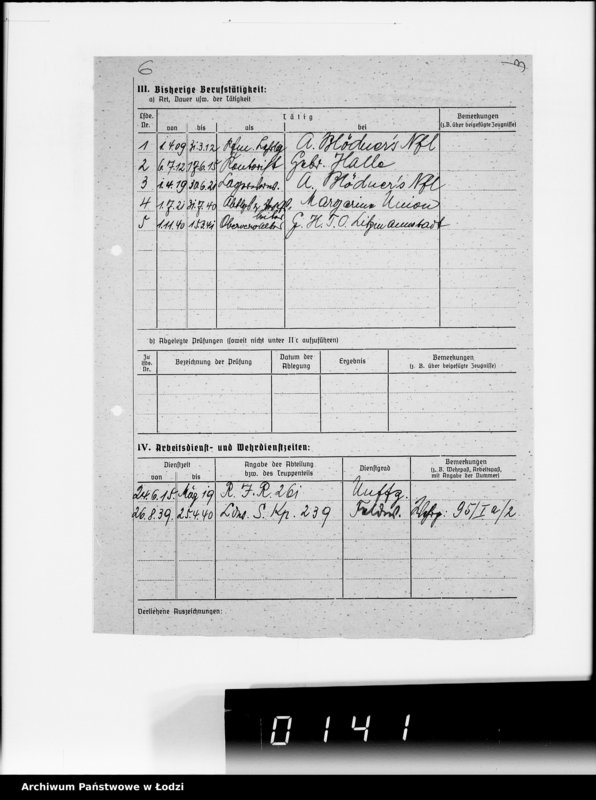 6
III. Bisherige Berufstätigkeit:
a) Art, Dauer usw. der Tätigkeit
Lfde. Nr. Tätig Bemerkungen
von bis als bei (z.B. über beigefügte Zeugnisse)
1 1.4.09 31.3.12 Kfm. A. Blödner's Nfl
2 6.7.12 Kontorist Gebr. Halle
3 1.4.19 30.6.21 A. Blödner's Nfl
4 1.7.21 31.7.40 Margarine Union
5 1.11.40 15.3.41 Oberverwalter G. H. T. O. Litzmannstadt
b) Abgelegte Prüfungen (soweit nicht unter II c aufzuführen)
Zu lfde. Nr. Bezeichnung der Prüfung Datum der Ablegung Ergebnis Bemerkungen
(z. B. über beigefügte Zeugnisse)
IV. Arbeitsdienst- und Wehrdienstzeiten:
Dienstzeit Angabe der Abteilung bzw. des Truppenteils Dienstgrad Bemerkungen
von bis (z. B. Wehrpaß, Arbeitspaß, mit Angabe der Nummer)
24.6.15 19 R. J. R. 261 Uffz.
26.8.39. 25.4.40 Lds. S. Kp. 239 Feldw. 95/I a/2
Verliehene Auszeichnungen:
0141
Archiwum Państwowe w Łodzi